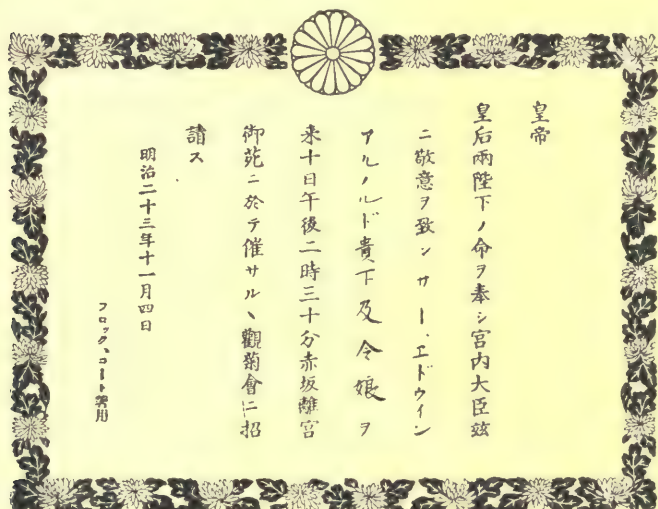 皇帝
皇后兩陛下ノ命ヲ奉シ宮内大臣玆
ニ敬意ヲ致シサー、エドウイン
アルノルド貴下及令娘ヲ
来十日午後二時三十分赤坂離宮
御苑ニ於テ催サルヽ觀菊會ニ招
請ス
明治二十三年十一月四日
フロックコート著用